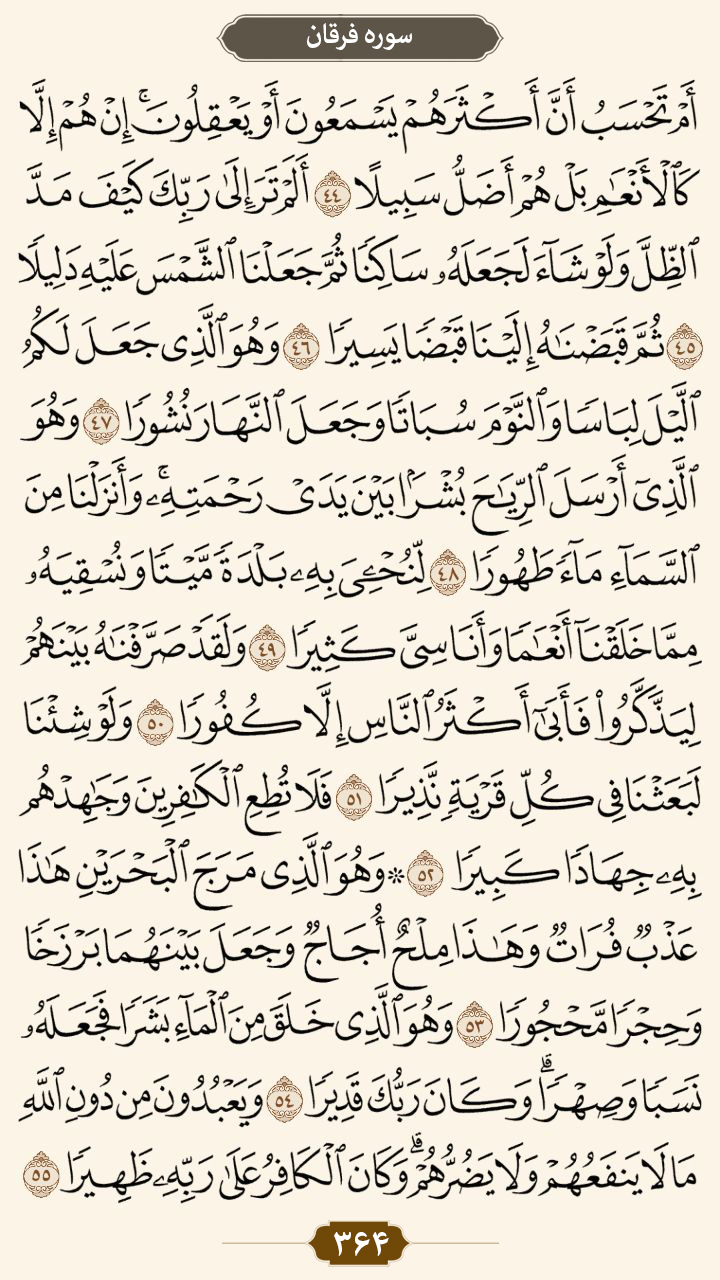 سوره فرقان
أَمْ تَحْسَبُ أَنَّ أَكْثَرَهُمْ يَسْمَعُونَ أَوْ يَعْقِلُونَ ۚ إِنْ هُمْ إِلَّا
كَٱلْأَنْعَٰمِ بَلْ هُمْ أَضَلُّ سَبِيلًا ٤٤ أَلَمْ تَرَ إِلَىٰ رَبِّكَ كَيْفَ مَدَّ
ٱلظِّلَّ وَلَوْ شَآءَ لَجَعَلَهُۥ سَاكِنًا ثُمَّ جَعَلْنَا ٱلشَّمْسَ عَلَيْهِ دَلِيلًا
٤٥ ثُمَّ قَبَضْنَٰهُ إِلَيْنَا قَبْضًا يَسِيرًا ٤٦ وَهُوَ ٱلَّذِى جَعَلَ لَكُمُ
ٱلَّيْلَ لِبَاسًا وَٱلنَّوْمَ سُبَاتًا وَجَعَلَ ٱلنَّهَارَ نُشُورًا ٤٧ وَهُوَ
ٱلَّذِىٓ أَرْسَلَ ٱلرِّيَٰحَ بُشْرًۢا بَيْنَ يَدَىْ رَحْمَتِهِۦ ۚ وَأَنزَلْنَا مِنَ
ٱلسَّمَآءِ مَآءً طَهُورًا ٤٨ لِّنُحْۦِىَ بِهِۦ بَلْدَةً مَّيْتًا وَنُسْقِيَهُۥ
مِمَّا خَلَقْنَآ أَنْعَٰمًا وَأَنَاسِىَّ كَثِيرًا ٤٩ وَلَقَدْ صَرَّفْنَٰهُ بَيْنَهُمْ
لِيَذَّكَّرُوا۟ فَأَبَىٰٓ أَكْثَرُ ٱلنَّاسِ إِلَّا كُفُورًا ٥٠ وَلَوْ شِئْنَا
لَبَعَثْنَا فِى كُلِّ قَرْيَةٍ نَّذِيرًا ٥١ فَلَا تُطِعِ ٱلْكَٰفِرِينَ وَجَٰهِدْهُم
بِهِۦ جِهَادًا كَبِيرًا ٥٢ ۞ وَهُوَ ٱلَّذِى مَرَجَ ٱلْبَحْرَيْنِ هَٰذَا
عَذْبٌ فُرَاتٌ وَهَٰذَا مِلْحٌ أُجَاجٌ وَجَعَلَ بَيْنَهُمَا بَرْزَخًا
وَحِجْرًا مَّحْجُورًا ٥٣ وَهُوَ ٱلَّذِى خَلَقَ مِنَ ٱلْمَآءِ بَشَرًا فَجَعَلَهُۥ
نَسَبًا وَصِهْرًا ۗ وَكَانَ رَبُّكَ قَدِيرًا ٥٤ وَيَعْبُدُونَ مِن دُونِ ٱللَّهِ
مَا لَا يَنفَعُهُمْ وَلَا يَضُرُّهُمْ ۗ وَكَانَ ٱلْكَافِرُ عَلَىٰ رَبِّهِۦ ظَهِيرًا ٥٥
۳۶۴